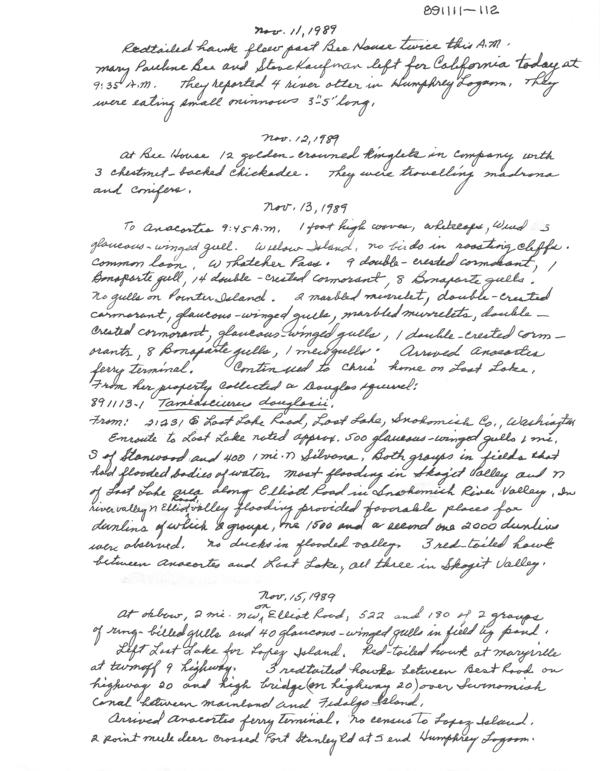 891111-112
Nov. 11, 1989
Redtailed hawk flew past Bee House twice this A.M.
Mary Pauline Bee and Steve Kaufman left for California today at
9:35 A.M. They reported 4 river otter in Humphrey Lagoon. They
were eating small minnows 3"-5" long.
Nov. 12, 1989
At Bee House 12 golden-crowned kinglets in company with
3 chestnut-backed chickadee. They were travelling madrona
and conifers.
Nov. 13, 1989
To Anacortes 9:45 A.M. 1 foot high waves, whitecaps, Wind 3
glaucous-winged gull. Willow Island, no birds in roosting cliffs.
Common loon, W Thatcher Pass. 9 double-crested cormorant, 1
Bonaparte gull, 14 double-crested cormorant, 8 Bonaparte gulls.
No gulls on Pointer Island. 2 marbled murrelet, double-crested
cormorant, glaucous-winged gulls, marbled murrelets, double-
crested cormorant, glaucous-winged gulls, 1 double-crested corm-
orants, 8 Bonaparte gulls, 1 mew gulls. Arrived Anacortes
ferry terminal. Continued to Chris' home on Lost Lake.
From her property collected a Douglas squirrel:
891113-1 Tamiasciurus douglasii.
From: 21231 E Lost Lake Road, Lost Lake, Snohomish Co., Washington
Enroute to Lost Lake noted approx. 500 glaucous-winged gulls 1 mi.
S of Stanwood and 400 1 mi. N Silvana. Both groups in fields that
had flooded bodies of water. Most flooding in Skagit Valley and N
of Lost Lake area along Elliott Road in Snohomish River Valley. In
river valley N Elliott Road valley flooding provided favorable places for
dunlins of which 2 groups, one 1500 and a second one 2000 dunlins
were observed. No ducks in flooded valley. 3 red-tailed hawk
between Anacortes and Lost Lake, all three in Skagit Valley.
Nov. 15, 1989
At oxbow, 2 mi. NW, on Elliot Road, 522 and 180 of 2 groups
of ring-billed gulls and 40 glaucous-winged gulls in field by pond.
Left Lost Lake for Lopez Island. Red-tailed hawk at Marysville
at turnoff 9 highway. 3 redtailed hawks between Best Road on
highway 20 and high bridge (on highway 20) over Swinomish
Canal between mainland and Fidalgo Island.
Arrived Anacortes ferry terminal. No census to Lopez Island.
2 point mule deer crossed Port Stanley Rd at S end Humphrey Lagoon.